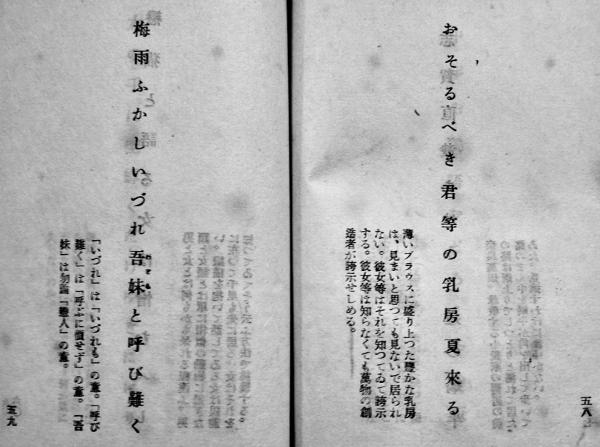 おそるべき君等の乳房夏来る
薄いブラウスに盛り上つた豊かな乳房
は、見まいと思つても見ないで居られ
ない。彼女等はそれを知つてゐて誇示
する。彼女等は知らなくても萬物の創
造者が誇示せしめる。
五八
梅雨ふかしいづれ吾妹と呼び難く
わぎも
「いづれ」は「いづれも」の意。「呼び
難く」は「呼ぶに値せず」の意。「吾
妹」は勿論「戀人」の意。
五九